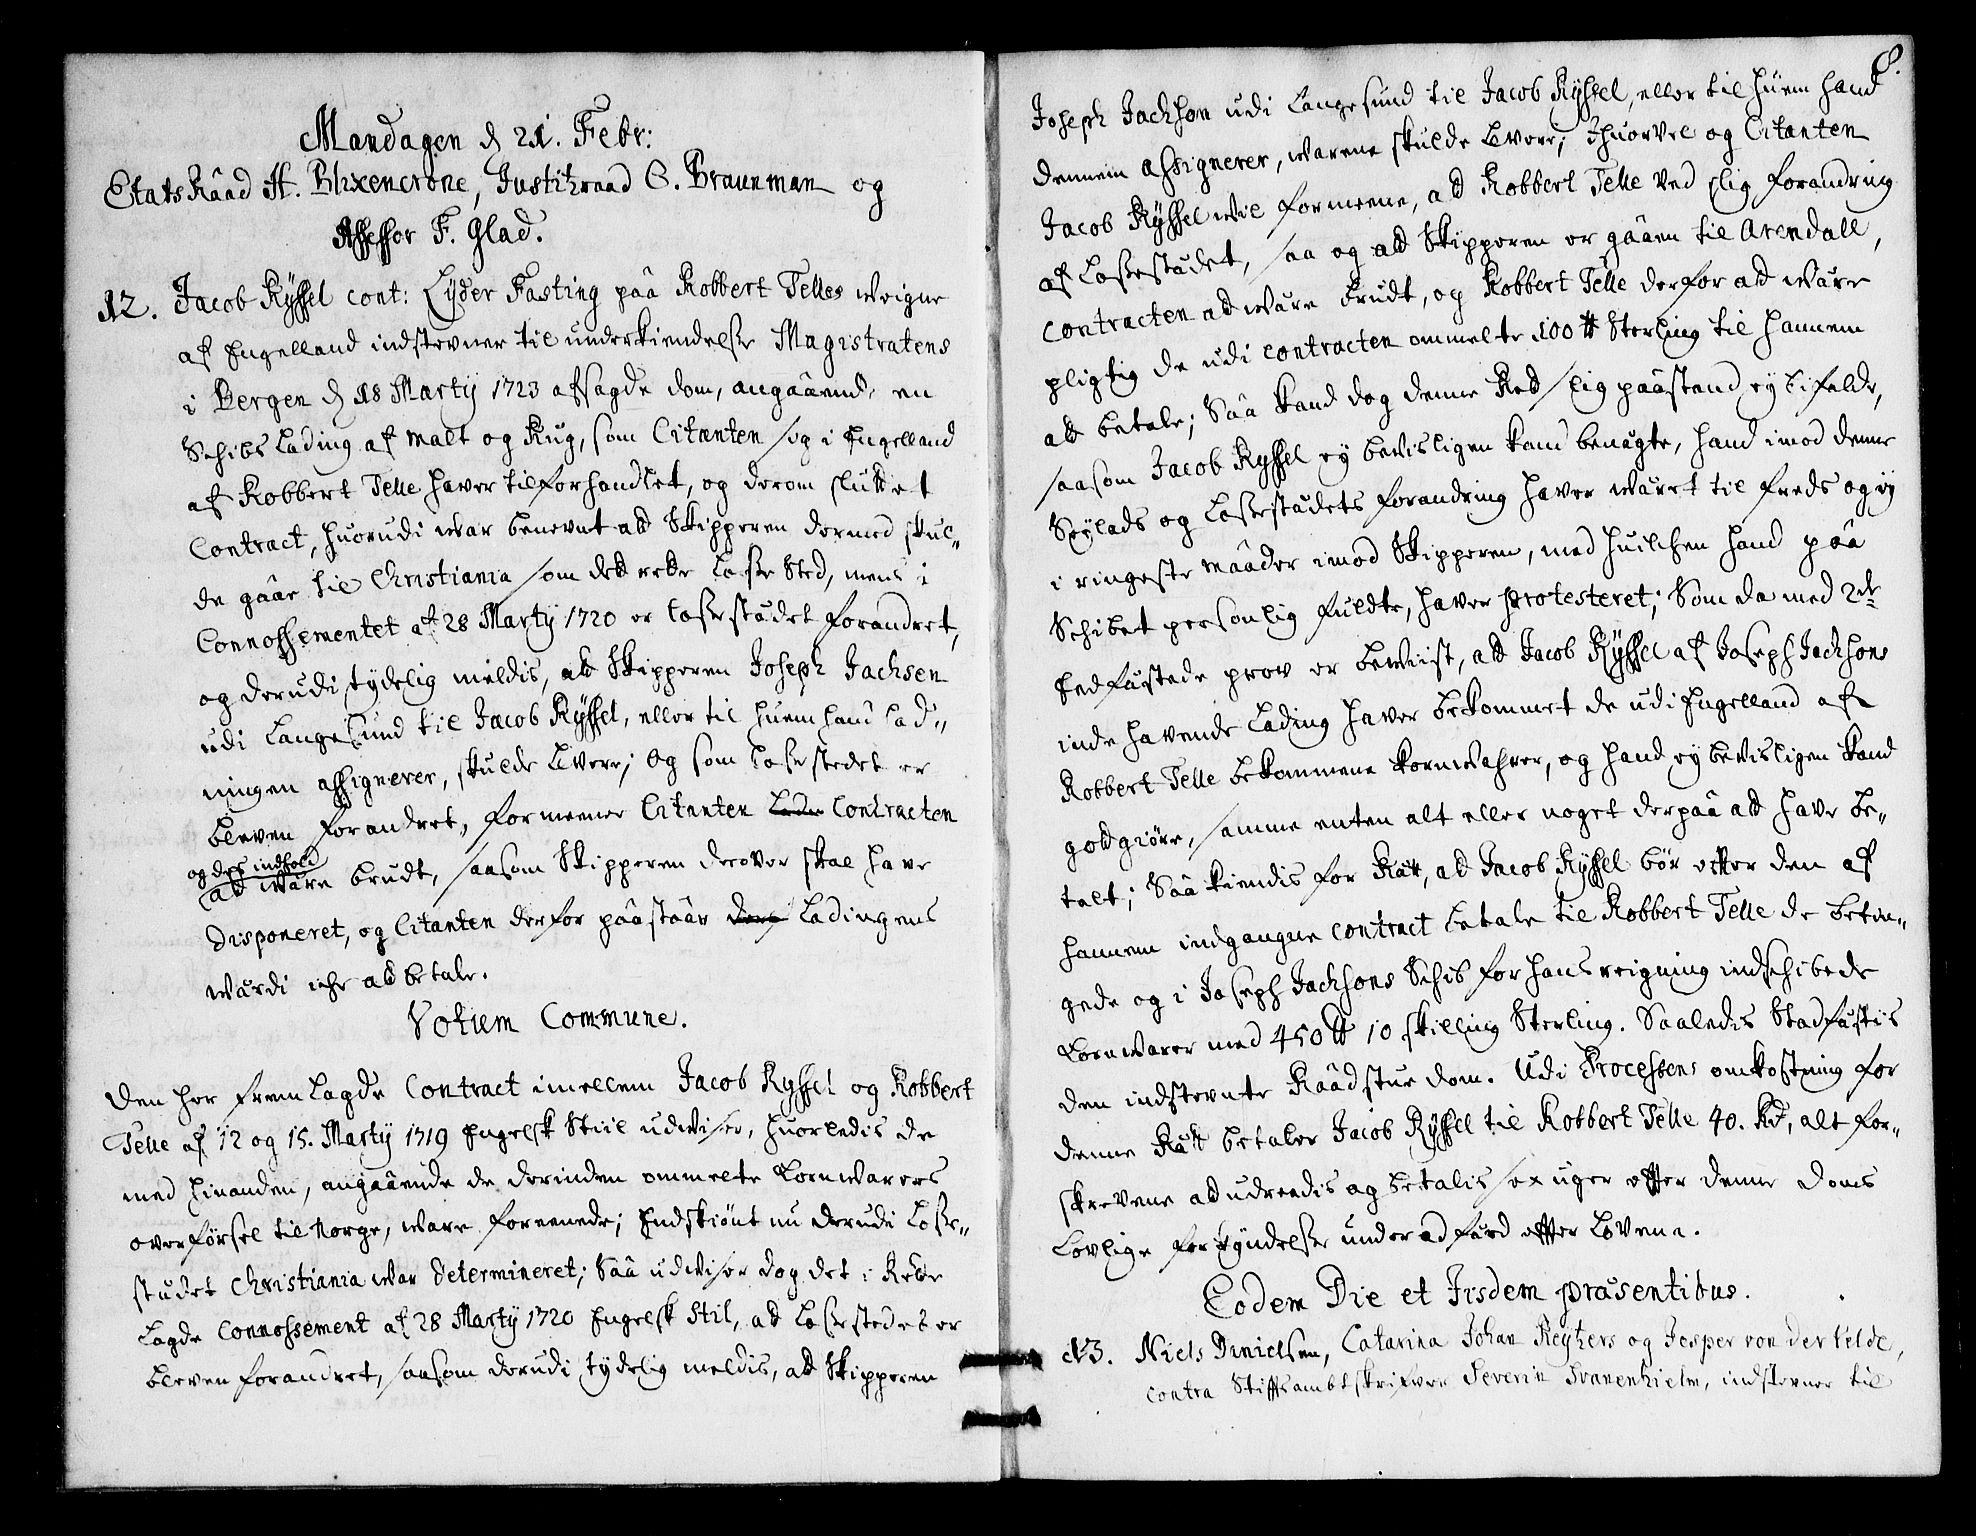 Mandagen d 21. Febr:
Etats Raad H. Blixencrone, Justitzraad C. Braunman og
Assessor F. Glad.
12. Jacob Ryssel cont: Lyder Fasting paa Robbert Telles weigne
af Engelland indstevner til underkiendelse Magistratens
i Bergen d 18 Martij 1723 afsagde dom, angaaende en
Schibs Lading af Malt og Rug, som Citanten sig i Engelland
af Robbert Telle haver tilforhandlet, og derom sluttet
Contract, huorudi war benevnt at Skipperen dermed skul-
de gaae til Christiania som dett rette Losse Sted, mens i
Connossementet af 28 Martij 1720 er Lossestædet forandret,
og derudi tydelig meldis, at Skipperen Joseph Jachsen
udi Langesund til Jacob Ryssel, eller til huem hand Lad-
ningen assignerer, skulde Levere; Og som Lossestedet er
bleven forandret, formeener Citanten Contracten
og des indhold
at være brudt, saasom Skipperen derover skal have
disponeret, og Citanten derfor paastaar Ladingens
wærdi iche at betale.
Votum Commune.
Den her fremlagde Contract imellem Jacob Ryssel og Robbert
Telle af 12 og 15. Martij 1719 Engelsk Stiil udwiser, huorledis de
med hinanden, angaaende de derinden ommelte Kornwarers
overførsel til Norge, ware foreenede; Endskiønt nu derudi Losse-
stædet Christiania war determineret; Saa udwiser dog det i Rette
Lagde Connossement af 28 Martij 1720 Engelsk Stil, at Lossestedet er
bleven forandret, saasom derudi tydelig meldis, at Skipperen
8.
Joseph Jackson udi Langesund til Jacob Ryssel, eller til huem hand
dennem assignerer, warene skulde Levere; Ihuorvel og Citanten
Jacob Ryssel wil formeene, at Robbert Telle ved slig forandring
af Lossestædet, saa og at Skipperen er gaaen til Arendall,
Contracten at være brudt, og Robbert Telle derfor at være
pligtig de udi Contracten ommelte 100 ℔ Sterling til hannem
at betale; Saa kand dog denne Ræslig paastand ey bifalde,
saasom Jacob Ryssel ey bevisligen kand benægte, hand imod denne
Seylads og Lossestædets forandring haver wæret til freds og ey
i ringeste maader imod Skipperen, med huilchen hand paa
Schibet personlig fuldte, haver protesteret; Som da med 2de
Eedfæstede prov er beviist, at Jacob Ryssel af Joseph Jacksons
inde havende Lading haver bekommet de udi Engelland af
Robbert Telle bekommene kornwahrer, og hand ey bevisligen kand
godgiøre, samme enten alt eller noget derpaa at have be-
talt; Saa kiendis for Ræt, at Jacob Ryssel bør efter den af
hannem indgangne Contract betale til Robbert Telle de betin-
gede og i Joseph Jacksons Schib for hans reigning indschibede
Kornwarer med 450 ℔ 10 skilling Sterling. Saaledis Stadfæstis
den indstevnte Raadstue dom. Udi Processens omkostning for
denne Ræt betaler Jacob Ryssel til Robbert Telle 40. Rd, alt for-
skrevene at udreedis og betalis sex uger efter denne Doms
Lovlige forkyndelse under adfærd efter Loven.
Eodem Die et Iisdem præsentibus.
13. Niels Danielsen, Catarina Johan Reyhers og Jesper von der Velde,
contra Stiftsambtskriver Severin Svanenhielm, indstevner til